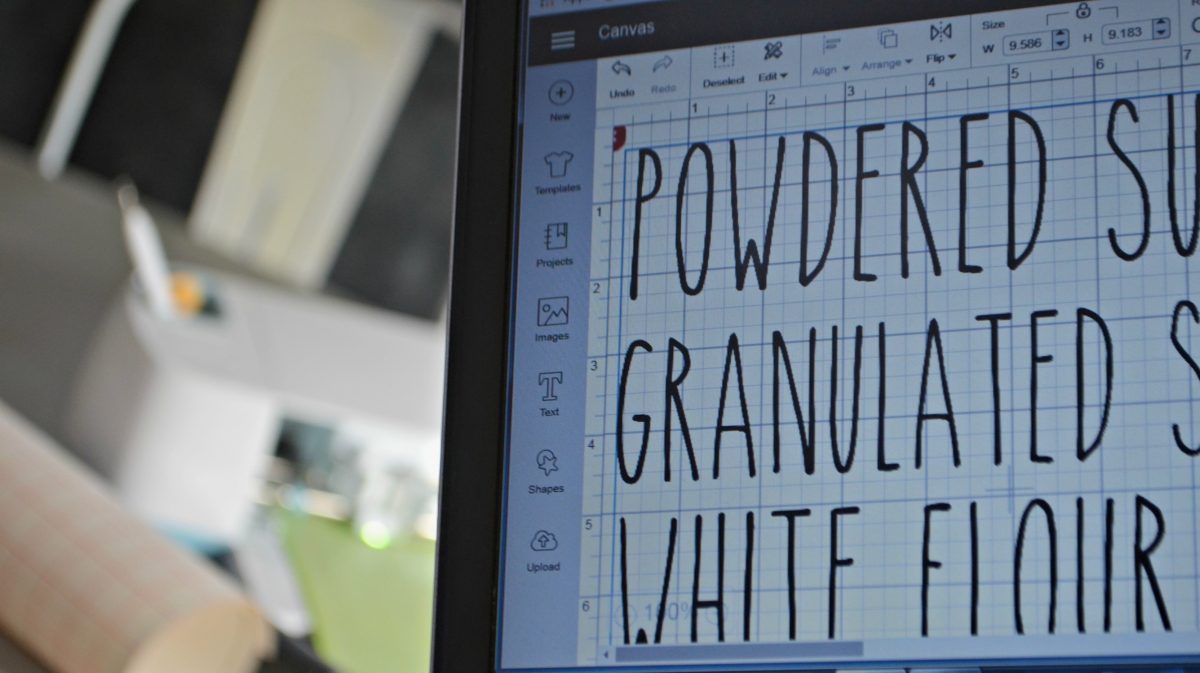 Canvas
Size
W 9.586 H 9.183
Undo Redo Deselect Edit Align Arrange Flip
1 2 3 4 5 6 7
New
Templates
Projects
Images
Text
Shapes
Upload
1
2
3
4
5
6
POWDERED SU
GRANULATED S
WHITE FLOUR
100%